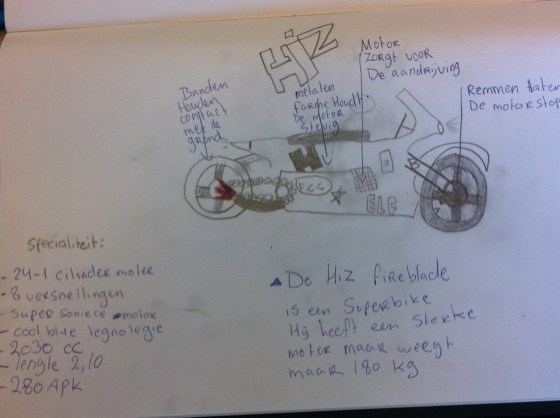 HiZ
Motor
zorgt voor
De aandrijving
Banden
Houden
contact
met de
grond
metalen
farme Houdt
De motor
stevig
Remmen laten
De motor stop
H
ELF
Specialiteit:
- 24-1 cilinder moter
- 8 versnellingen
- super soniece motor
- cool blue legnologie
- 2030 cc
- lengte 2,10
- 280 Apk
De HiZ fireblade
is een Superbike
Hij heeft een Sterke
moter maar weegt
maar 180 kg